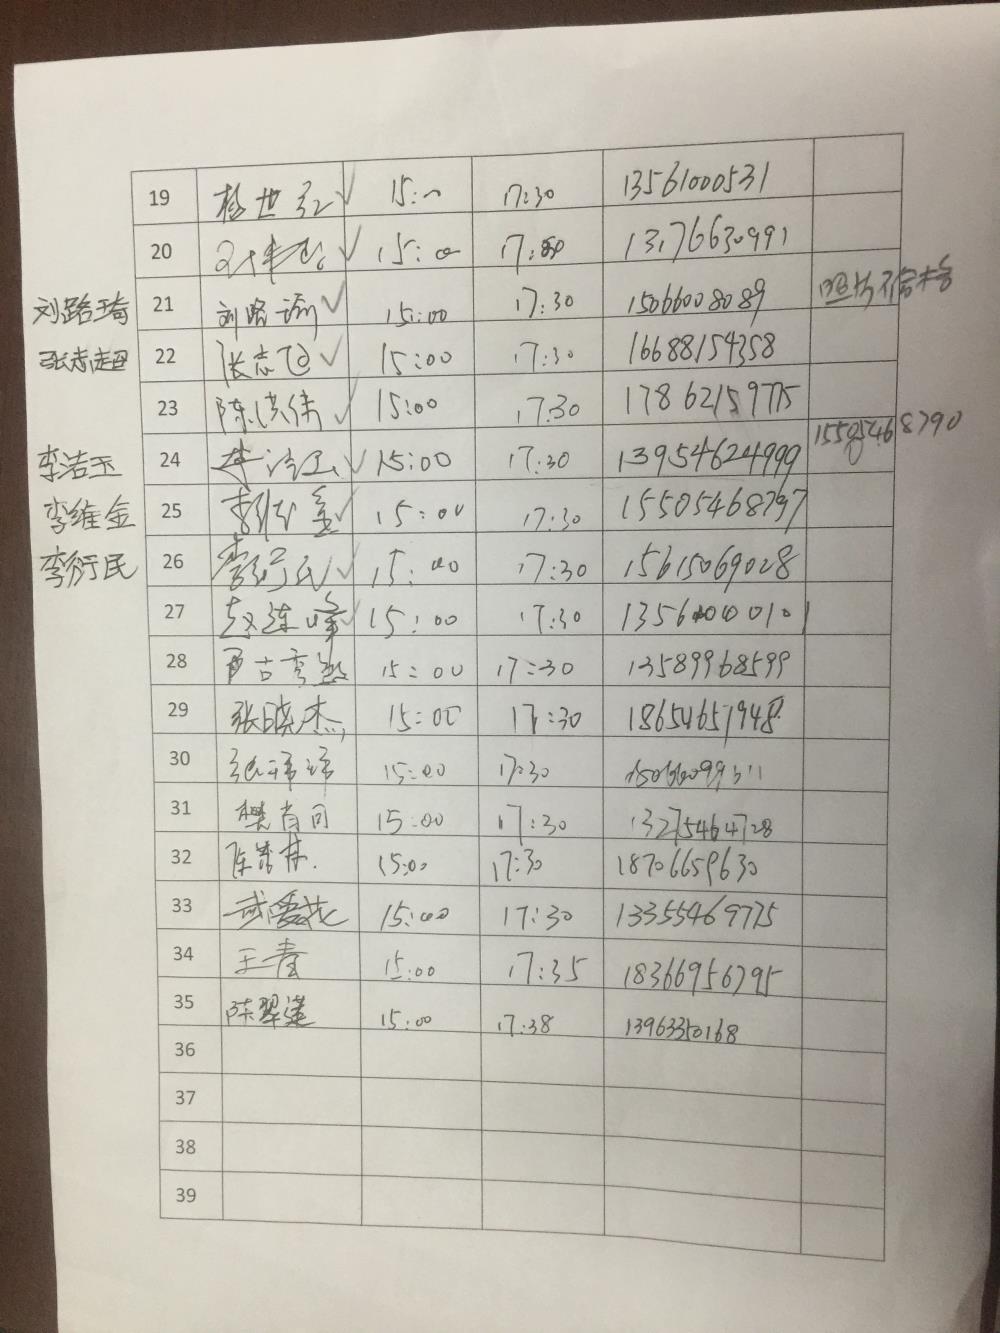 19 杨世红 15:00 17:30 13561000531
20 15:00 17:30 13176630991
刘路琦 21 刘路琦 15:00 17:30 15066008089 照片不合格
张志超 22 张志超 15:00 17:30 16688154358
23 陈洪伟 15:00 17:30 17862159775
李洁玉 24 李洁玉 15:00 17:30 13954624999 15505468790
李维金 25 李维金 15:00 17:30 15505468797
李衍民 26 李衍民 15:00 17:30 15615069028
27 赵连峰 15:00 17:30 13560000101
28 15:00 17:30 13589968599
29 张晓杰 15:00 17:30 18654651948
30 15:00 17:30
31 樊肖同 15:00 17:30 13275464728
32 15:00 17:30 18706659630
33 武爱花 15:00 17:30 13355469775
34 王青 15:00 17:35 18366956795
35 陈翠莲 15:00 17:38 13963350168
36
37
38
39